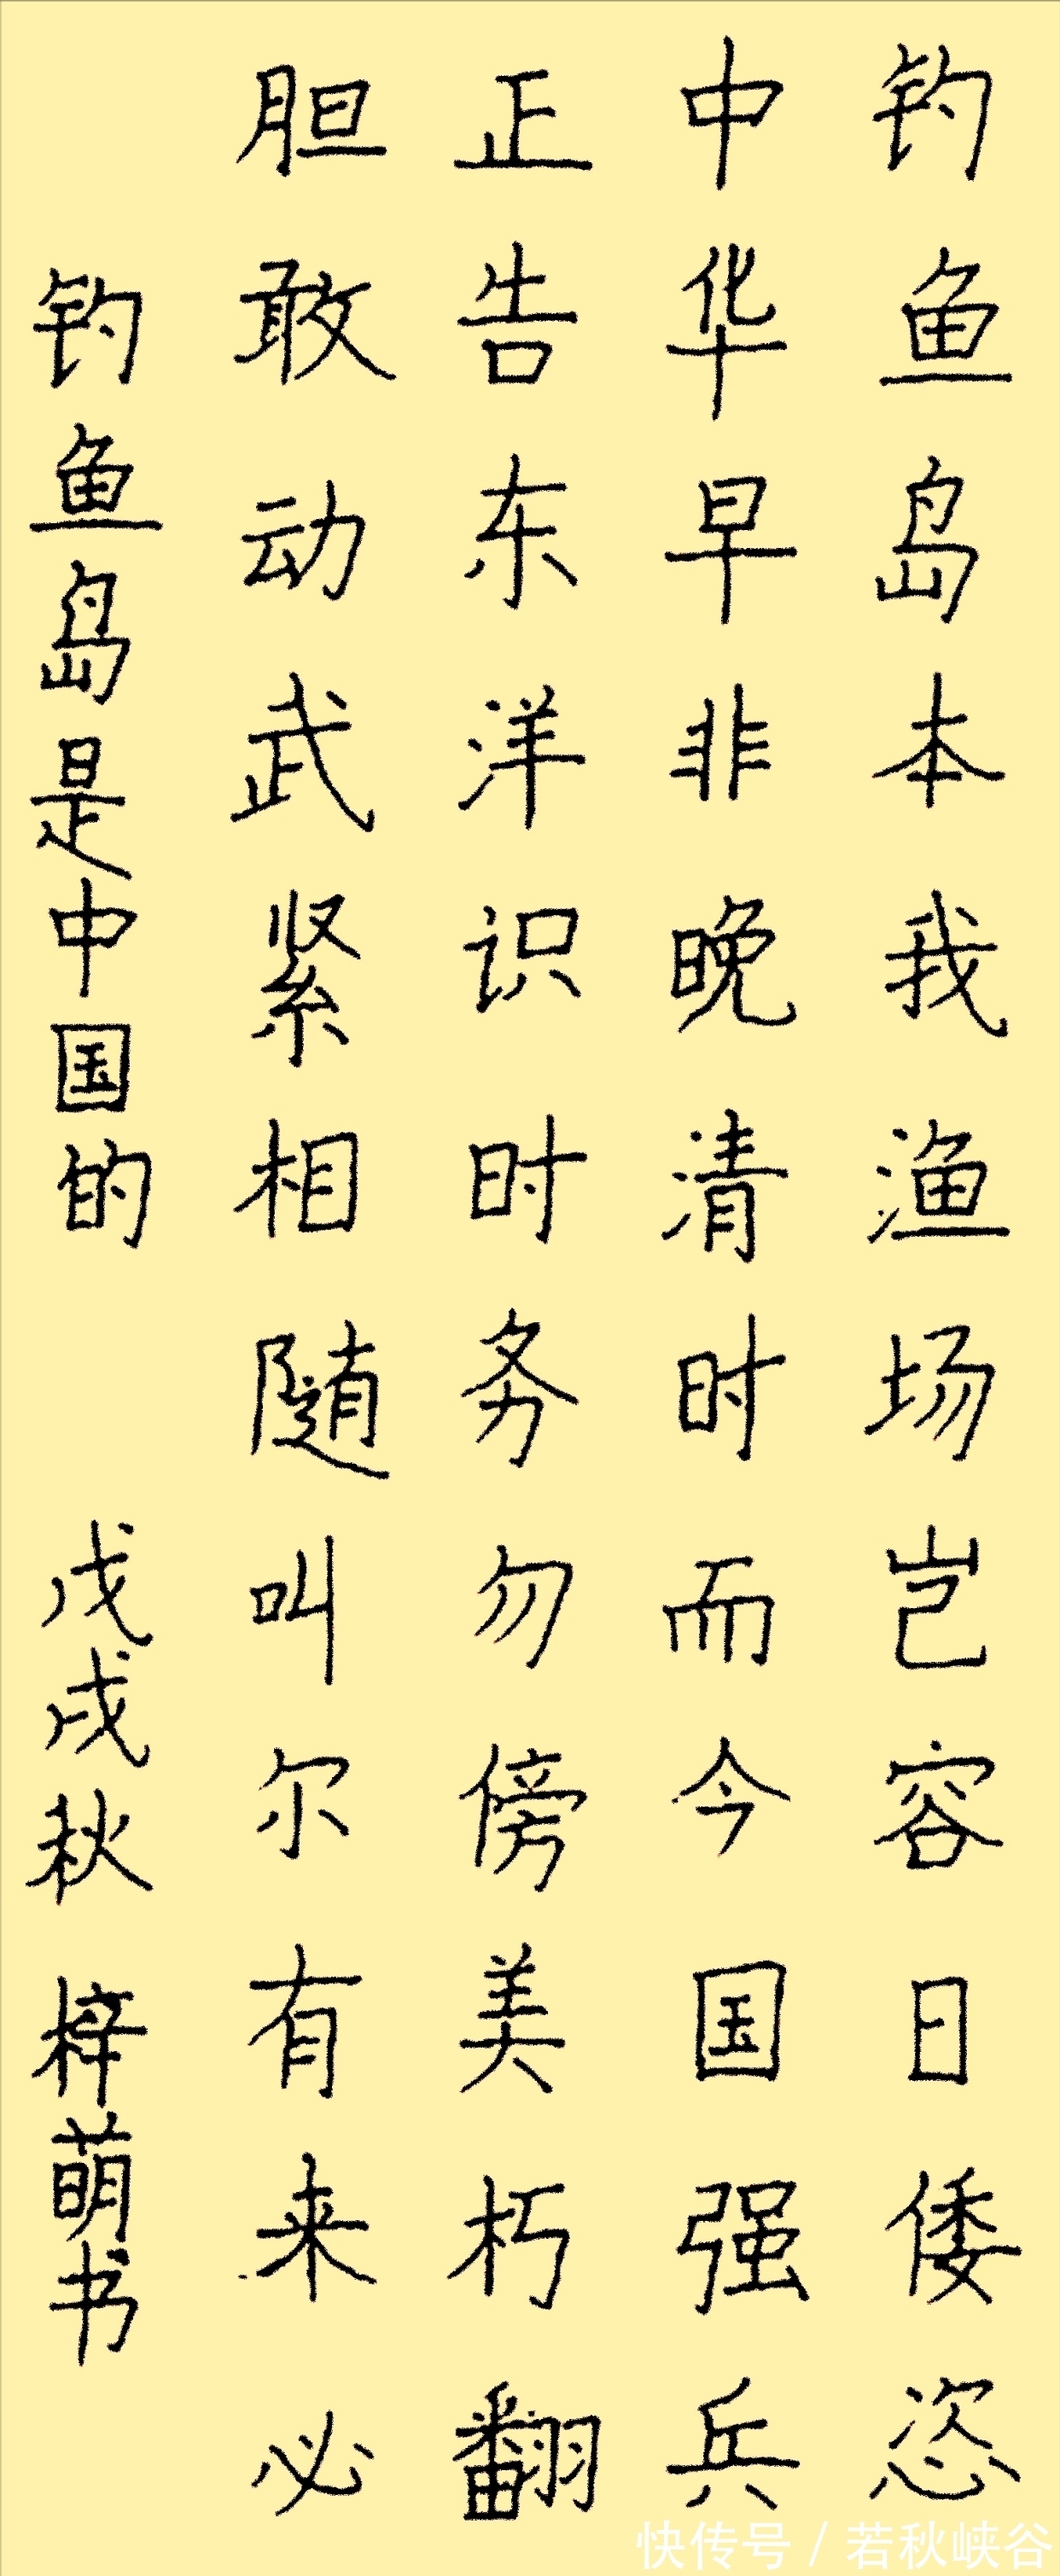 钓鱼岛本我渔场岂容日倭恣
中华早非晚清时而今国强兵
正告东洋识时务勿傍美朽翻
胆敢动武紧相随叫尔有来必
钓鱼岛是中国的 戊戌秋 梓萌书
快传号 / 若秋峡谷